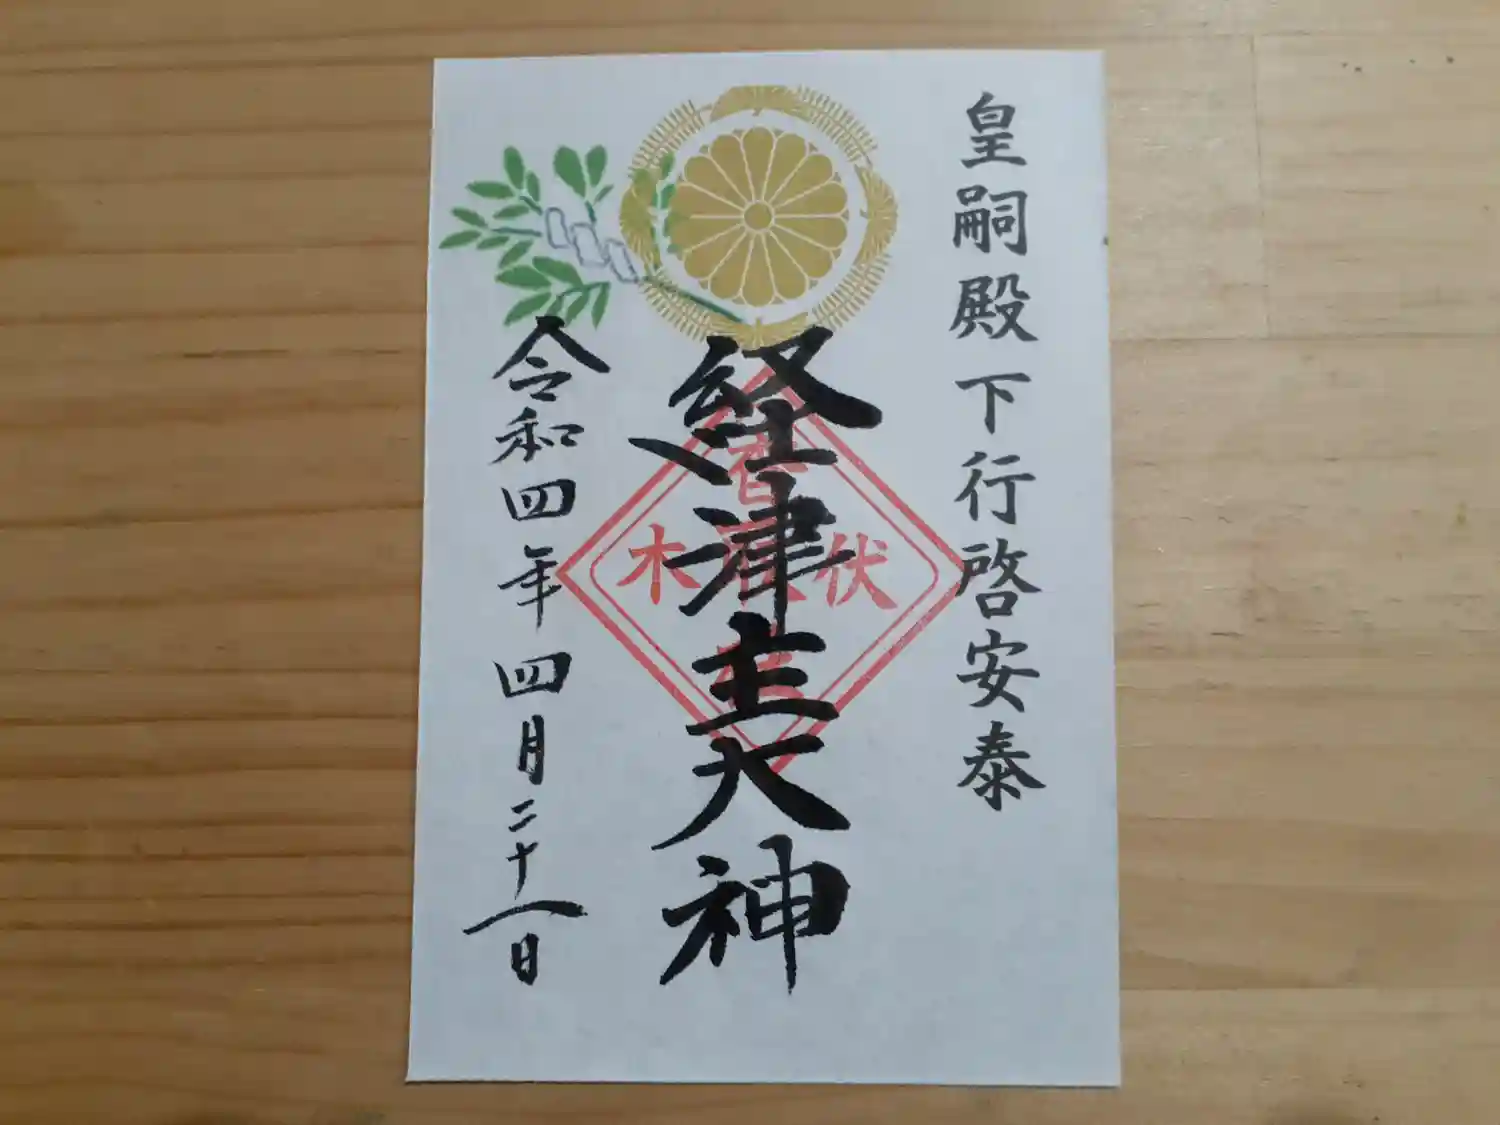 皇嗣殿下行啓安泰
経津主大神
伏木
香
令和四年四月二十一日